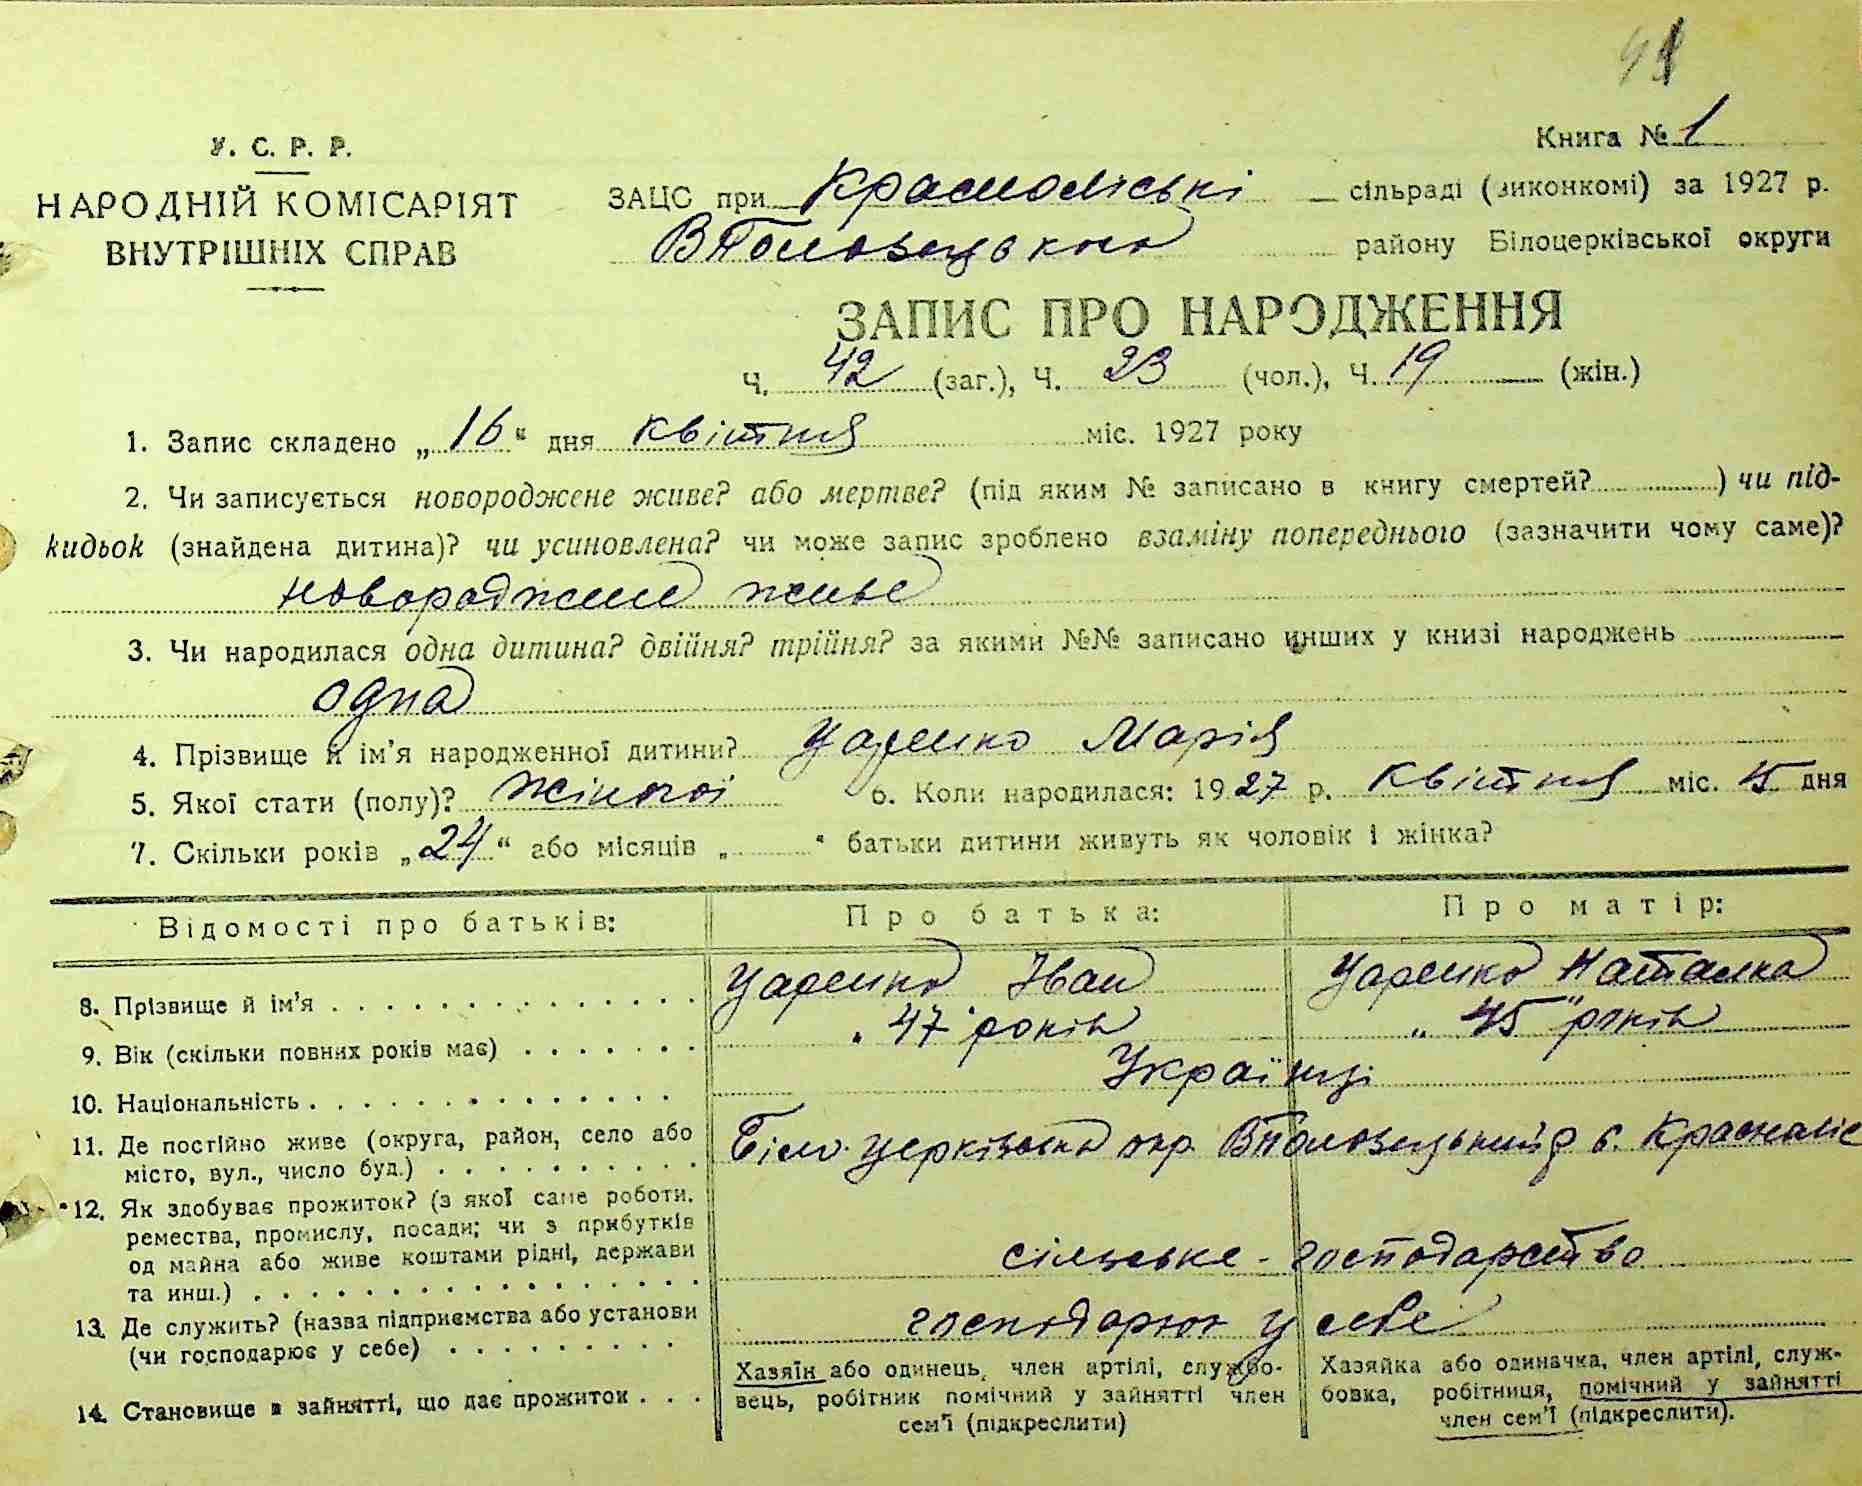 41
У. С. Р. Р.
Книга № 1
НАРОДНІЙ КОМІСАРІЯТ
ВНУТРІШНІХ СПРАВ
ЗАЦС при Красноліські сільраді (виконкомі) за 1927 р.
ВПоловецького району Білоцерківської округи
ЗАПИС ПРО НАРОДЖЕННЯ
Ч. 42 (заг.), Ч. 23 (чол.), Ч. 19 (жін.)
1. Запис складено „16“ дня квітня міс. 1927 року
2. Чи записується новороджене живе? або мертве? (під яким № записано в книгу смертей? ) чи під-
кидьок (знайдена дитина)? чи усиновлена? чи може запис зроблено взаміну попереднього (зазначити чому саме)?
новороджене живе
3. Чи народилася одна дитина? двійня? трійня? за якими №№ записано инших у книзі народжень
одна
4. Прізвище й ім'я народженної дитини? Царенко Марія
5. Якої стати (полу)? Жіночої 6. Коли народилася: 1927 р. Квітня міс. 15 дня
7. Скільки років „24“ або місяців „ “ батьки дитини живуть як чоловік і жінка?
Відомості про батьків: Про батька: Про матір:
8. Прізвище й ім'я Царенко Іван Царенко Наталка
9. Вік (скільки повних років має) „47" років „45" років
10. Національність Українці
11. Де постійно живе (округа, район, село або
місто, вул., число буд.) Біло-церківська окр. ВПоловецький р с. Красноліс
12. Як здобуває прожиток? (з якої саме роботи,
ремества, промислу, посади; чи з прибутків
од майна або живе коштами рідні, держави
та инш.) сільське-господарство
13. Де служить? (назва підприємства або установи
(чи господарює у себе) господарює у себе
14. Становище в зайнятті, що дає прожиток
Хазяїн або одинець, член артілі, службо-
вець, робітник помічний у зайнятті член
сем'ї (підкреслити)
Хазяйка або одиначка, член артілі, служ-
бовка, робітниця, помічний у зайнятті
член сем'ї (підкреслити).